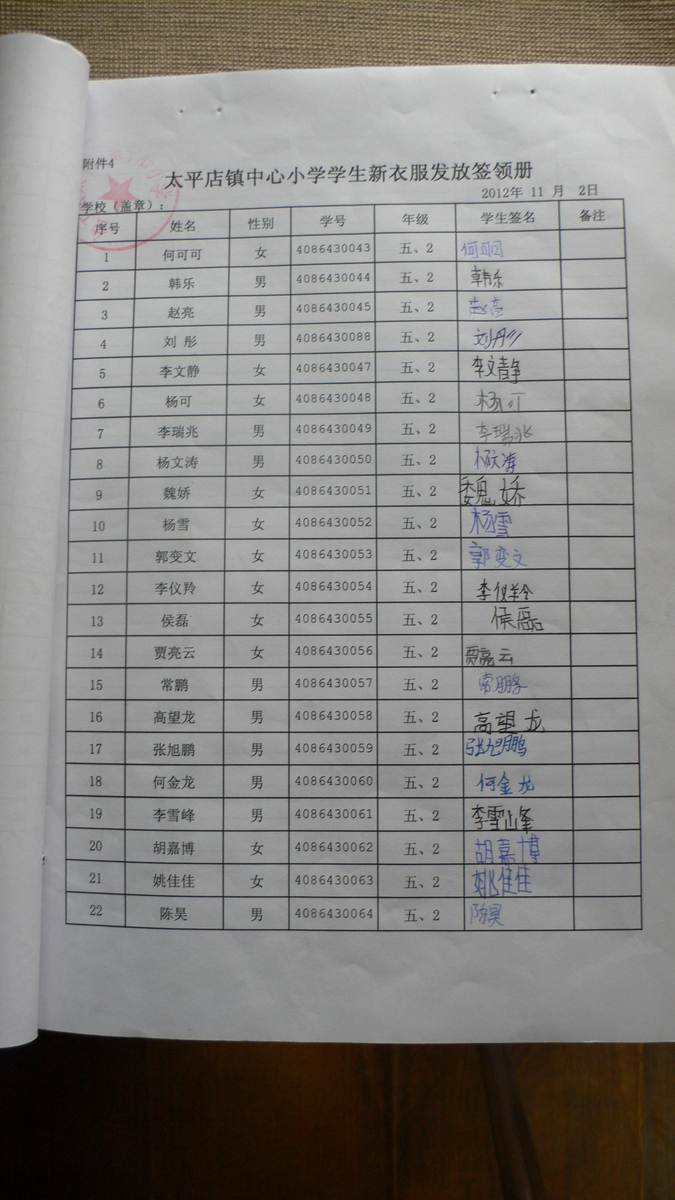 附件4
太平店镇中心小学学生新衣服发放签领册
2012年 11 月 2日
学校（盖章）：
序号 姓名 性别 学号 年级 学生签名 备注
1 何可可 女 4086430043 五、2
2 韩乐 男 4086430044 五、2 韩乐
3 赵亮 男 4086430045 五、2 赵亮
4 刘 彤 男 4086430088 五、2 刘彤
5 李文静 女 4086430047 五、2 李文静
6 杨可 女 4086430048 五、2 杨可
7 李瑞兆 男 4086430049 五、2 李瑞兆
8 杨文涛 男 4086430050 五、2 杨文涛
9 魏娇 女 4086430051 五、2 魏娇
10 杨雪 女 4086430052 五、2 杨雪
11 郭变文 女 4086430053 五、2 郭变文
12 李仪羚 女 4086430054 五、2 李仪羚
13 侯磊 女 4086430055 五、2 侯磊
14 贾亮云 女 4086430056 五、2 贾亮云
15 常鹏 男 4086430057 五、2 常鹏
16 高望龙 男 4086430058 五、2 高望龙
17 张旭鹏 男 4086430059 五、2 张旭鹏
18 何金龙 男 4086430060 五、2 何金龙
19 李雪峰 男 4086430061 五、2 李雪峰
20 胡嘉博 女 4086430062 五、2 胡嘉博
21 姚佳佳 女 4086430063 五、2 姚佳佳
22 陈昊 男 4086430064 五、2 陈昊